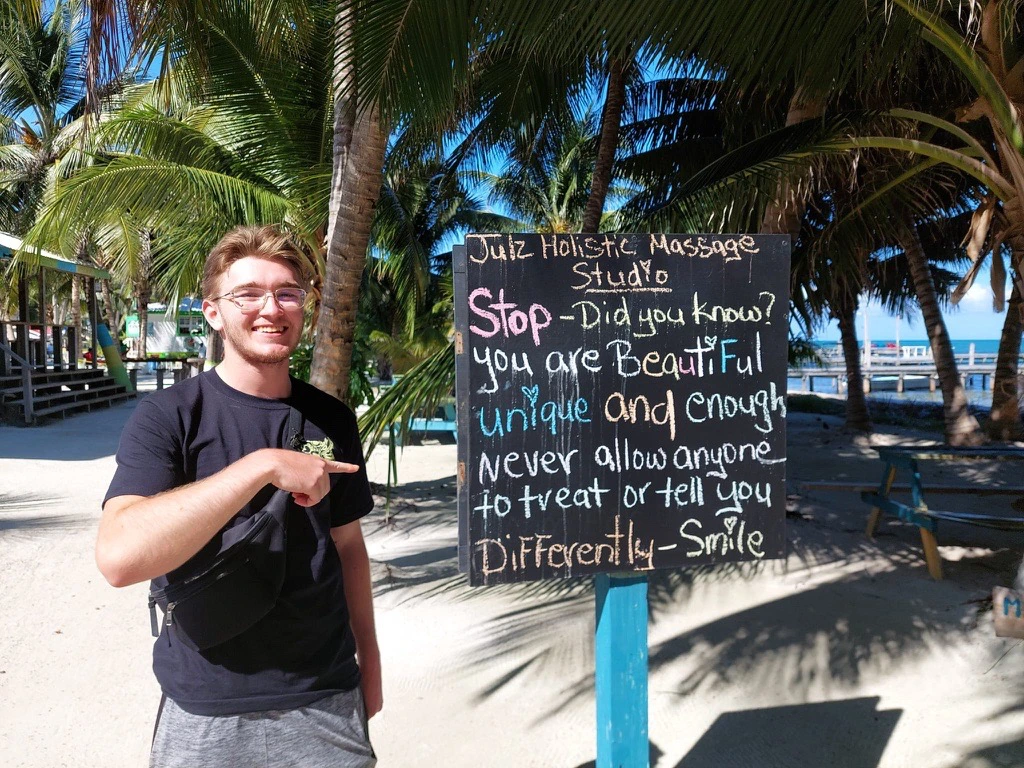 Julz Holistic Massage
Studio
Stop - Did you know?
you are Beautiful
unique and enough
Never allow anyone
to treat or tell you
Differently - Smile
M